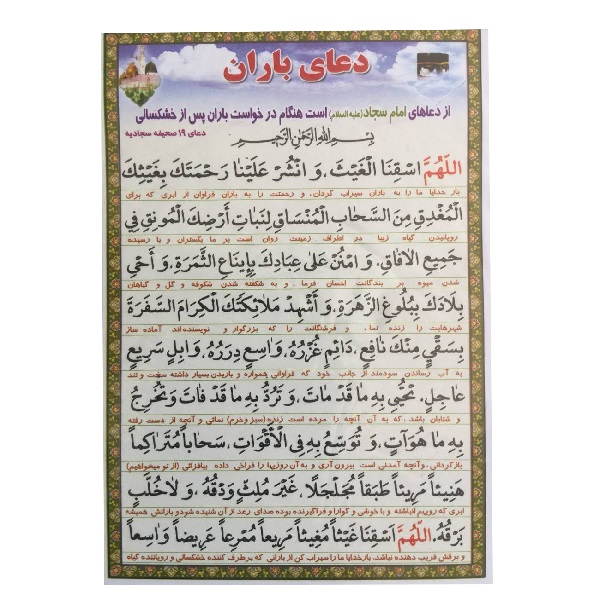 دعای باران
از دعاهای امام سجاد (علیه السلام) است هنگام درخواست باران پس از خشکسالی
دعای ۱۹ صحیفه سجادیه
بِسْمِ اللهِ الرَّحْمنِ الرَّحيمِ
اَللّهُمَّ اسْقِنَا الْغَيْثَ، وَ انْشُرْ عَلَيْنا رَحْمَتَكَ بِغَيْثِكَ
بار خدایا ما را به باران سیراب گردان، و رحمتت را به باران فراوان از ابری که برای
الْمُغْدِقِ مِنَ السَّحابِ الْمُنْساقِ لِنَباتِ اَرْضِكَ الْمُونِقِ فِي
رویانیدن گیاه زیبا در اطراف زمینت روان است بر ما بگستران و با رسیده
جَميعِ الْافاقِ. وَ امْنُنْ عَلى عِبادِكَ بِاِيناعِ الثَّمَرَةِ، وَ اَحْيِ
شدن میوه بر بندگانت احسان فرما و به شکفته شدن شکوفه و گل و گیاهان
بِلادَكَ بِبُلُوغِ الزَّهَرَةِ، وَ اَشْهِدْ مَلائِكَتَكَ الْكِرامَ السَّفَرَةَ
شهرهایت را زنده نما، و فرشتگانت را که بزرگوار و نویسنده‌اند آماده ساز
بِسَقْيٍ مِنْكَ نافِعٍ، دائِمٍ غُزْرُهُ، واسِعٍ دِرَرُهُ، وابِلٍ سَريعٍ
به آب رساندن سودمند از جانب خود که فراوانی همواره و باریدن بسیار داشته سخت و تند
عاجِلٍ. تُحْيي بِهِ ما قَدْ ماتَ، وَ تَرُدُّ بِهِ ما قَدْ فاتَ وَ تُخْرِجُ
و شتابان باشد. که به آن آنچه را مرده است زنده (سبز و خرم) نمائی و آنچه از دست رفته
بِهِ ما هُوَ آتٍ، وَ تُوَسِّعُ بِهِ فِي الْاَقْواتِ، سَحاباً مُتَراكِماً
بازگردانی، و آنچه آمدنی است بیرون آری و به آن روزیها را فراخی داده بیافزائی (از تو میخواهیم)
هَنيئاً مَريئاً طَبَقاً مُجَلْجَلاً، غَيْرَ مُلِثٍّ وَدْقُهُ، وَ لا خُلَّبٍ
ابری که رویهم انباشته و با خوشی و گوارا و فراگیرنده بوده صدای رعد از آن شنیده شود و بارانش همیشه
بَرْقُهُ. اَللّهُمَّ اسْقِنا غَيْثاً مُغيثاً مَريعاً مُمْرِعاً عَريضاً واسِعاً
و برقش فریب دهنده نباشد. بارخدایا ما را سیراب کن از بارانی که برطرف کننده خشکسالی و رویاننده گیاه